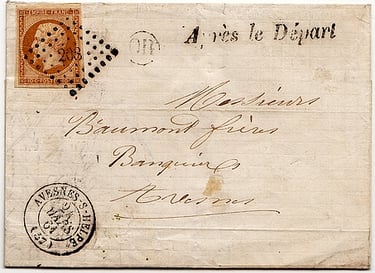 EMPIRE FRANC
208
OR
Après le Départ
Messieurs
Béaumont frères
Banquiers
Avesnes
AVESNES-S-HELPE
(57)